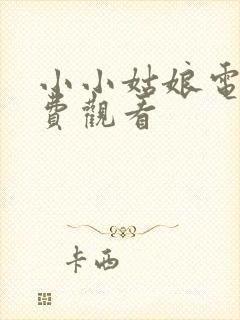 小小姑娘電
費觀看
卡西